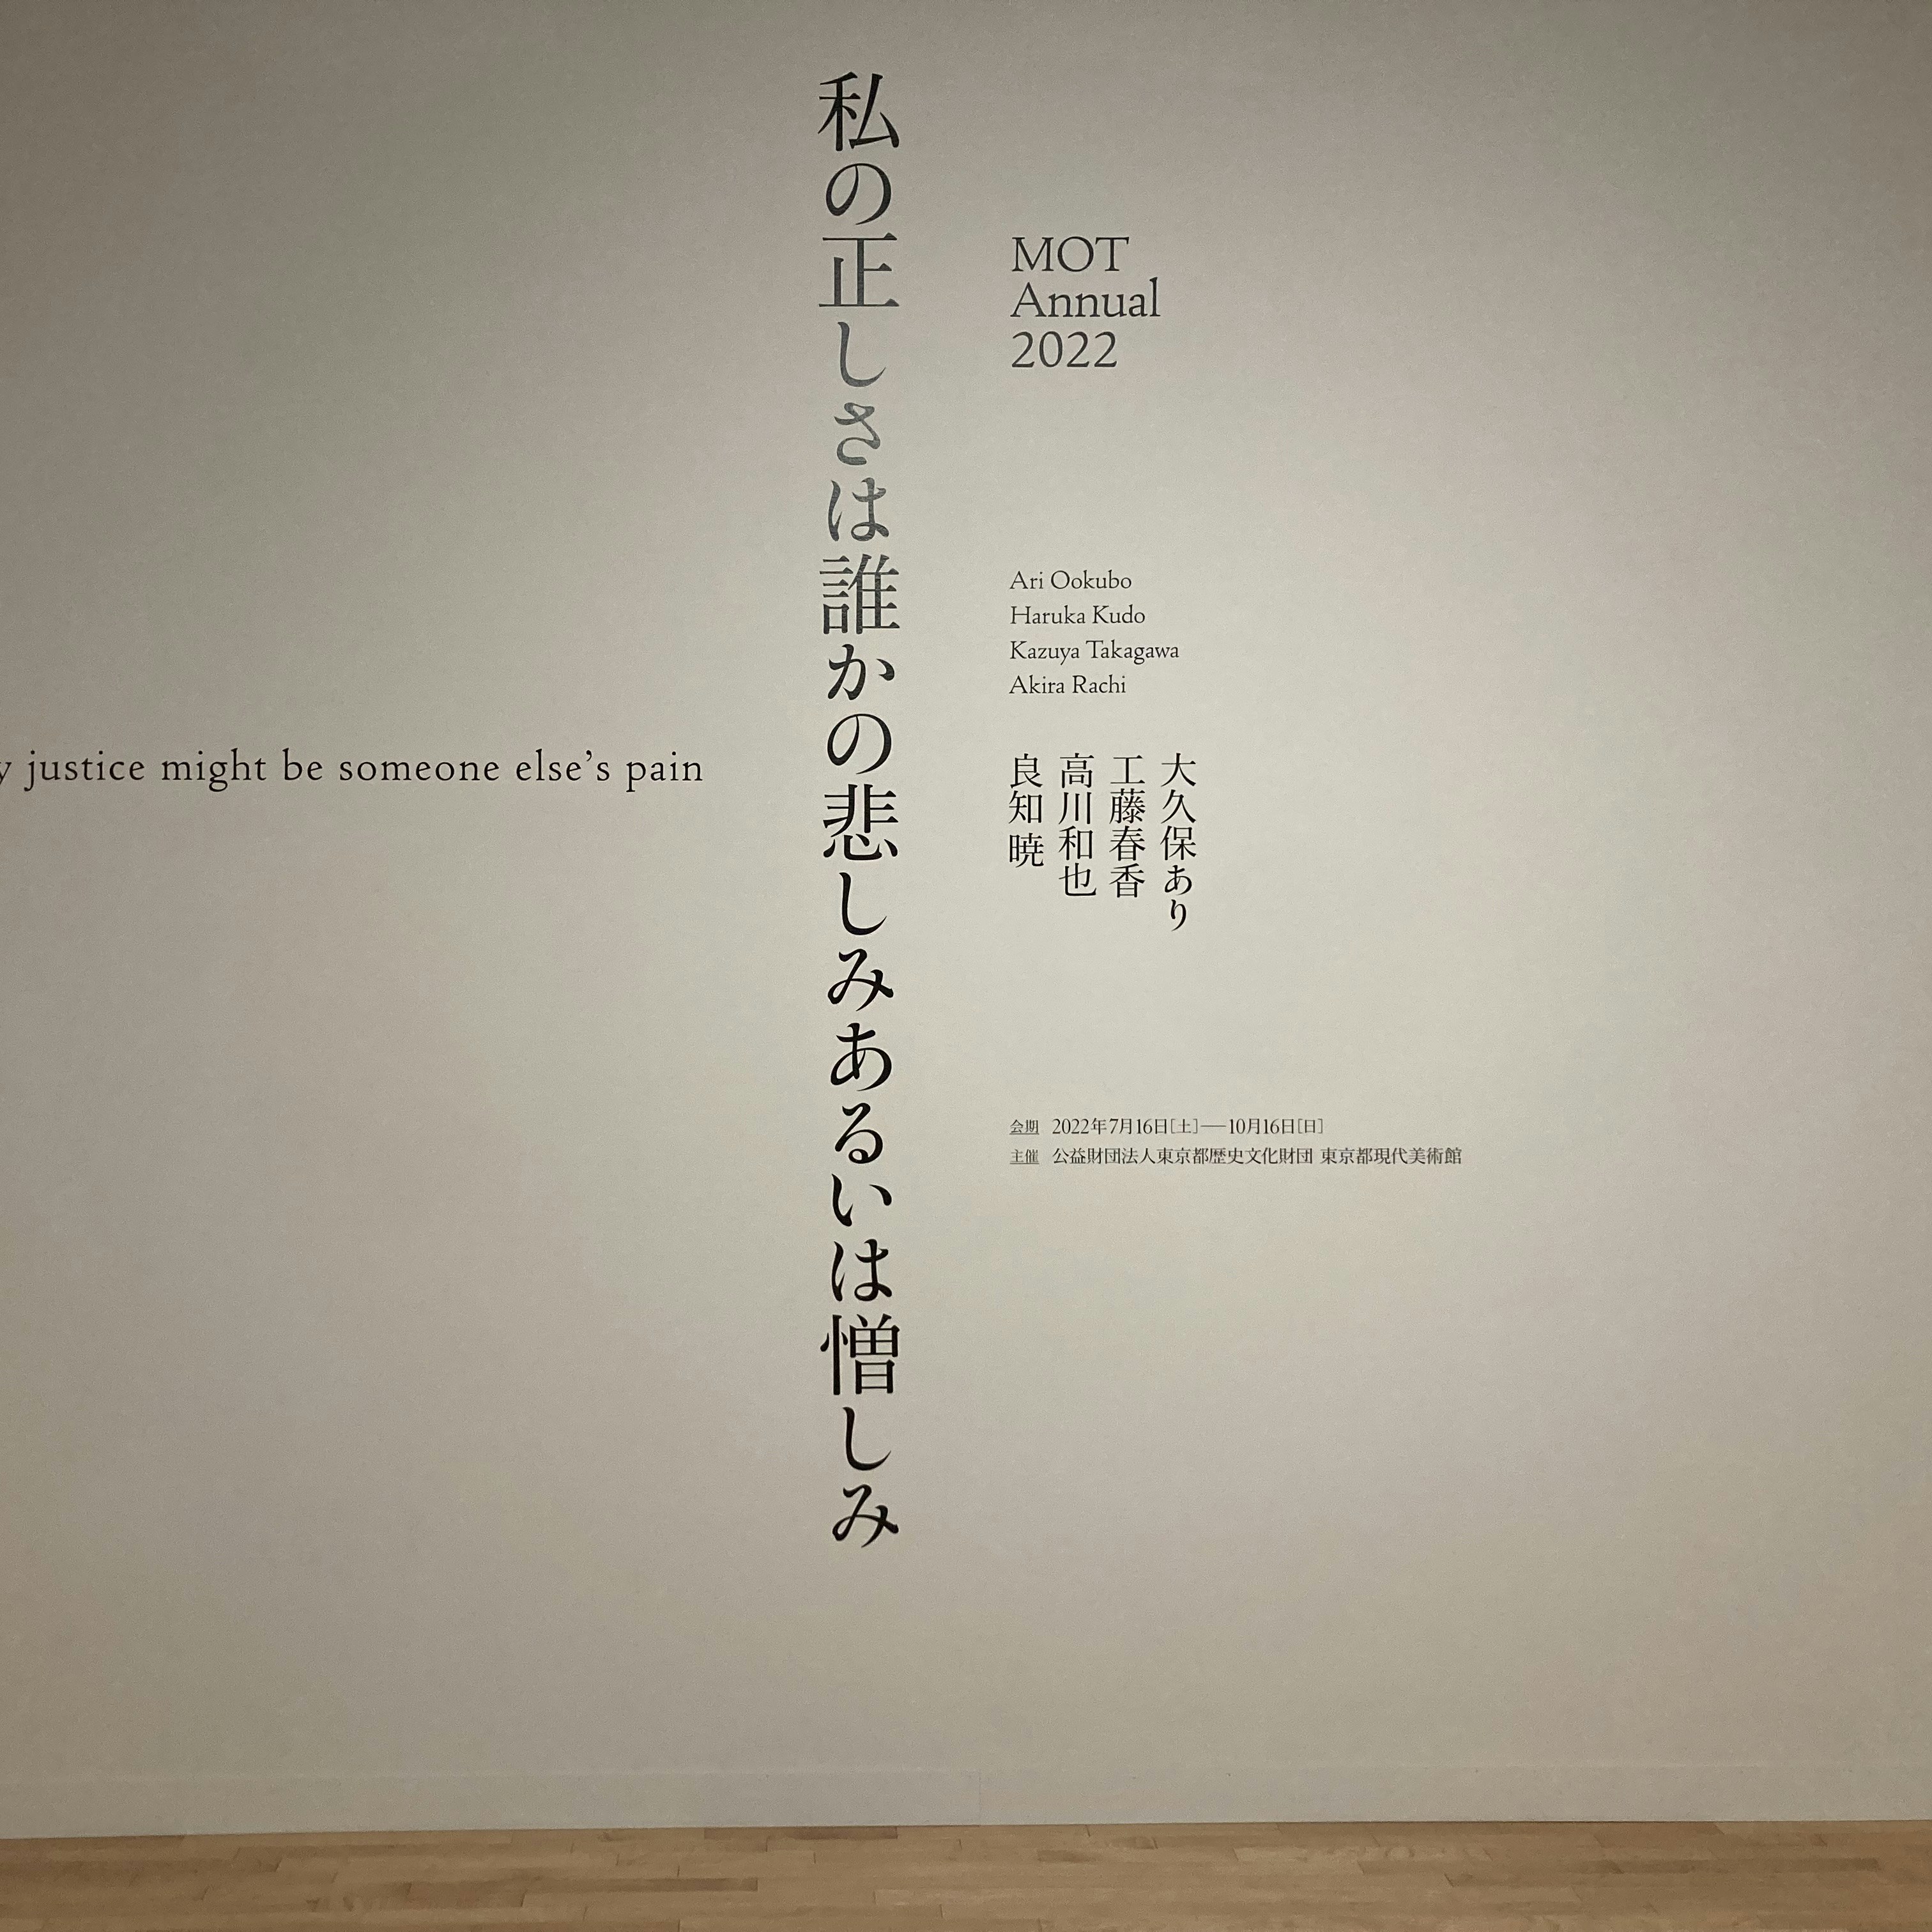 私の正しさは誰かの悲しみあるいは憎しみ
justice might be someone else's pain
MOT
Annual
2022
Ari Ookubo
Haruka Kudo
Kazuya Takagawa
Akira Rachi
大久保あり
工藤春香
高川和也
良知 暁
会期 2022年7月16日[土]—10月16日[日]
主催 公益財団法人東京都歴史文化財団 東京都現代美術館